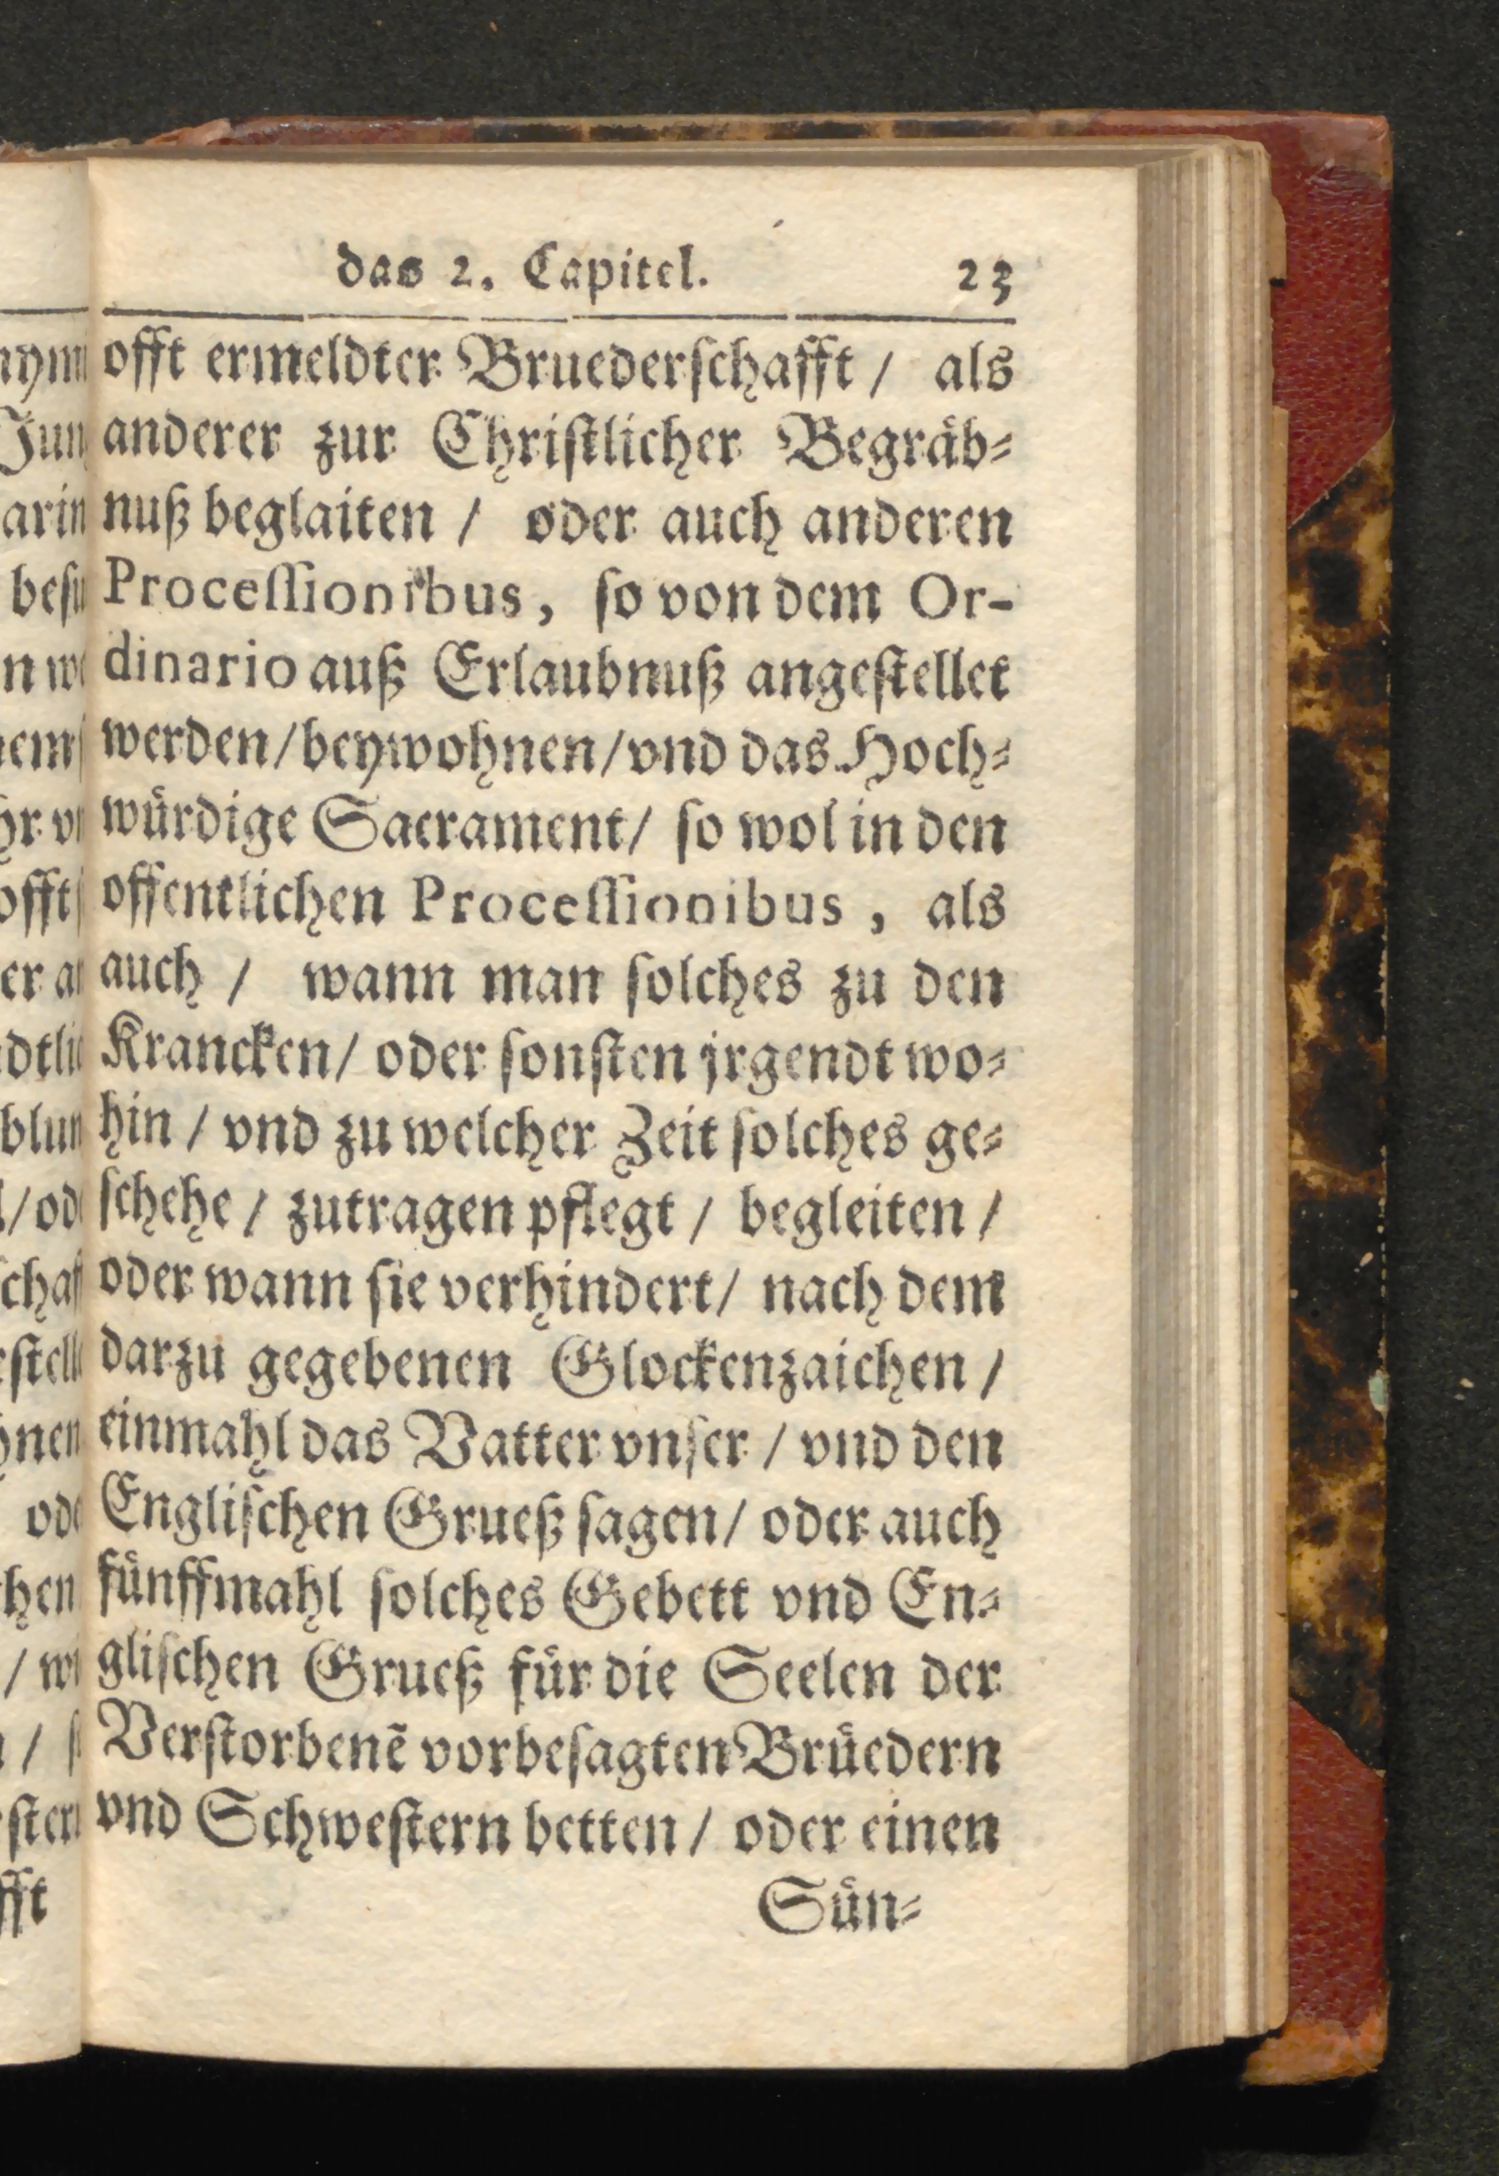 das 2. Capitel. 23
offt ermeldter Bruederſchafft / als
anderer zur Chriſtlicher Begräb⸗
nuß beglaiten / oder auch anderen
Proceſſionibus, ſo von dem Or-
dinario auß Erlaubnuß angeſtellet
werden/beywohnen/vnd das Hoch⸗
würdige Sacrament/ ſo wol in den
offentlichen Proceſſionibus, als
auch / wann man ſolches zu den
Krancken/ oder ſonſten jrgendt wo⸗
hin / vnd zu welcher Zeit ſolches ge⸗
ſchehe / zutragen pflegt / begleiten /
oder wann ſie verhindert/ nach dem
darzu gegebenen Glockenzaichen /
einmahl das Vatter vnſer / vnd den
Engliſchen Grueß ſagen/ oder auch
fünffmahl ſolches Gebett vnd En⸗
gliſchen Grueß für die Seelen der
Verſtorbenẽ vorbeſagten Brüedern
vnd Schweſtern betten / oder einen
Sün⸗